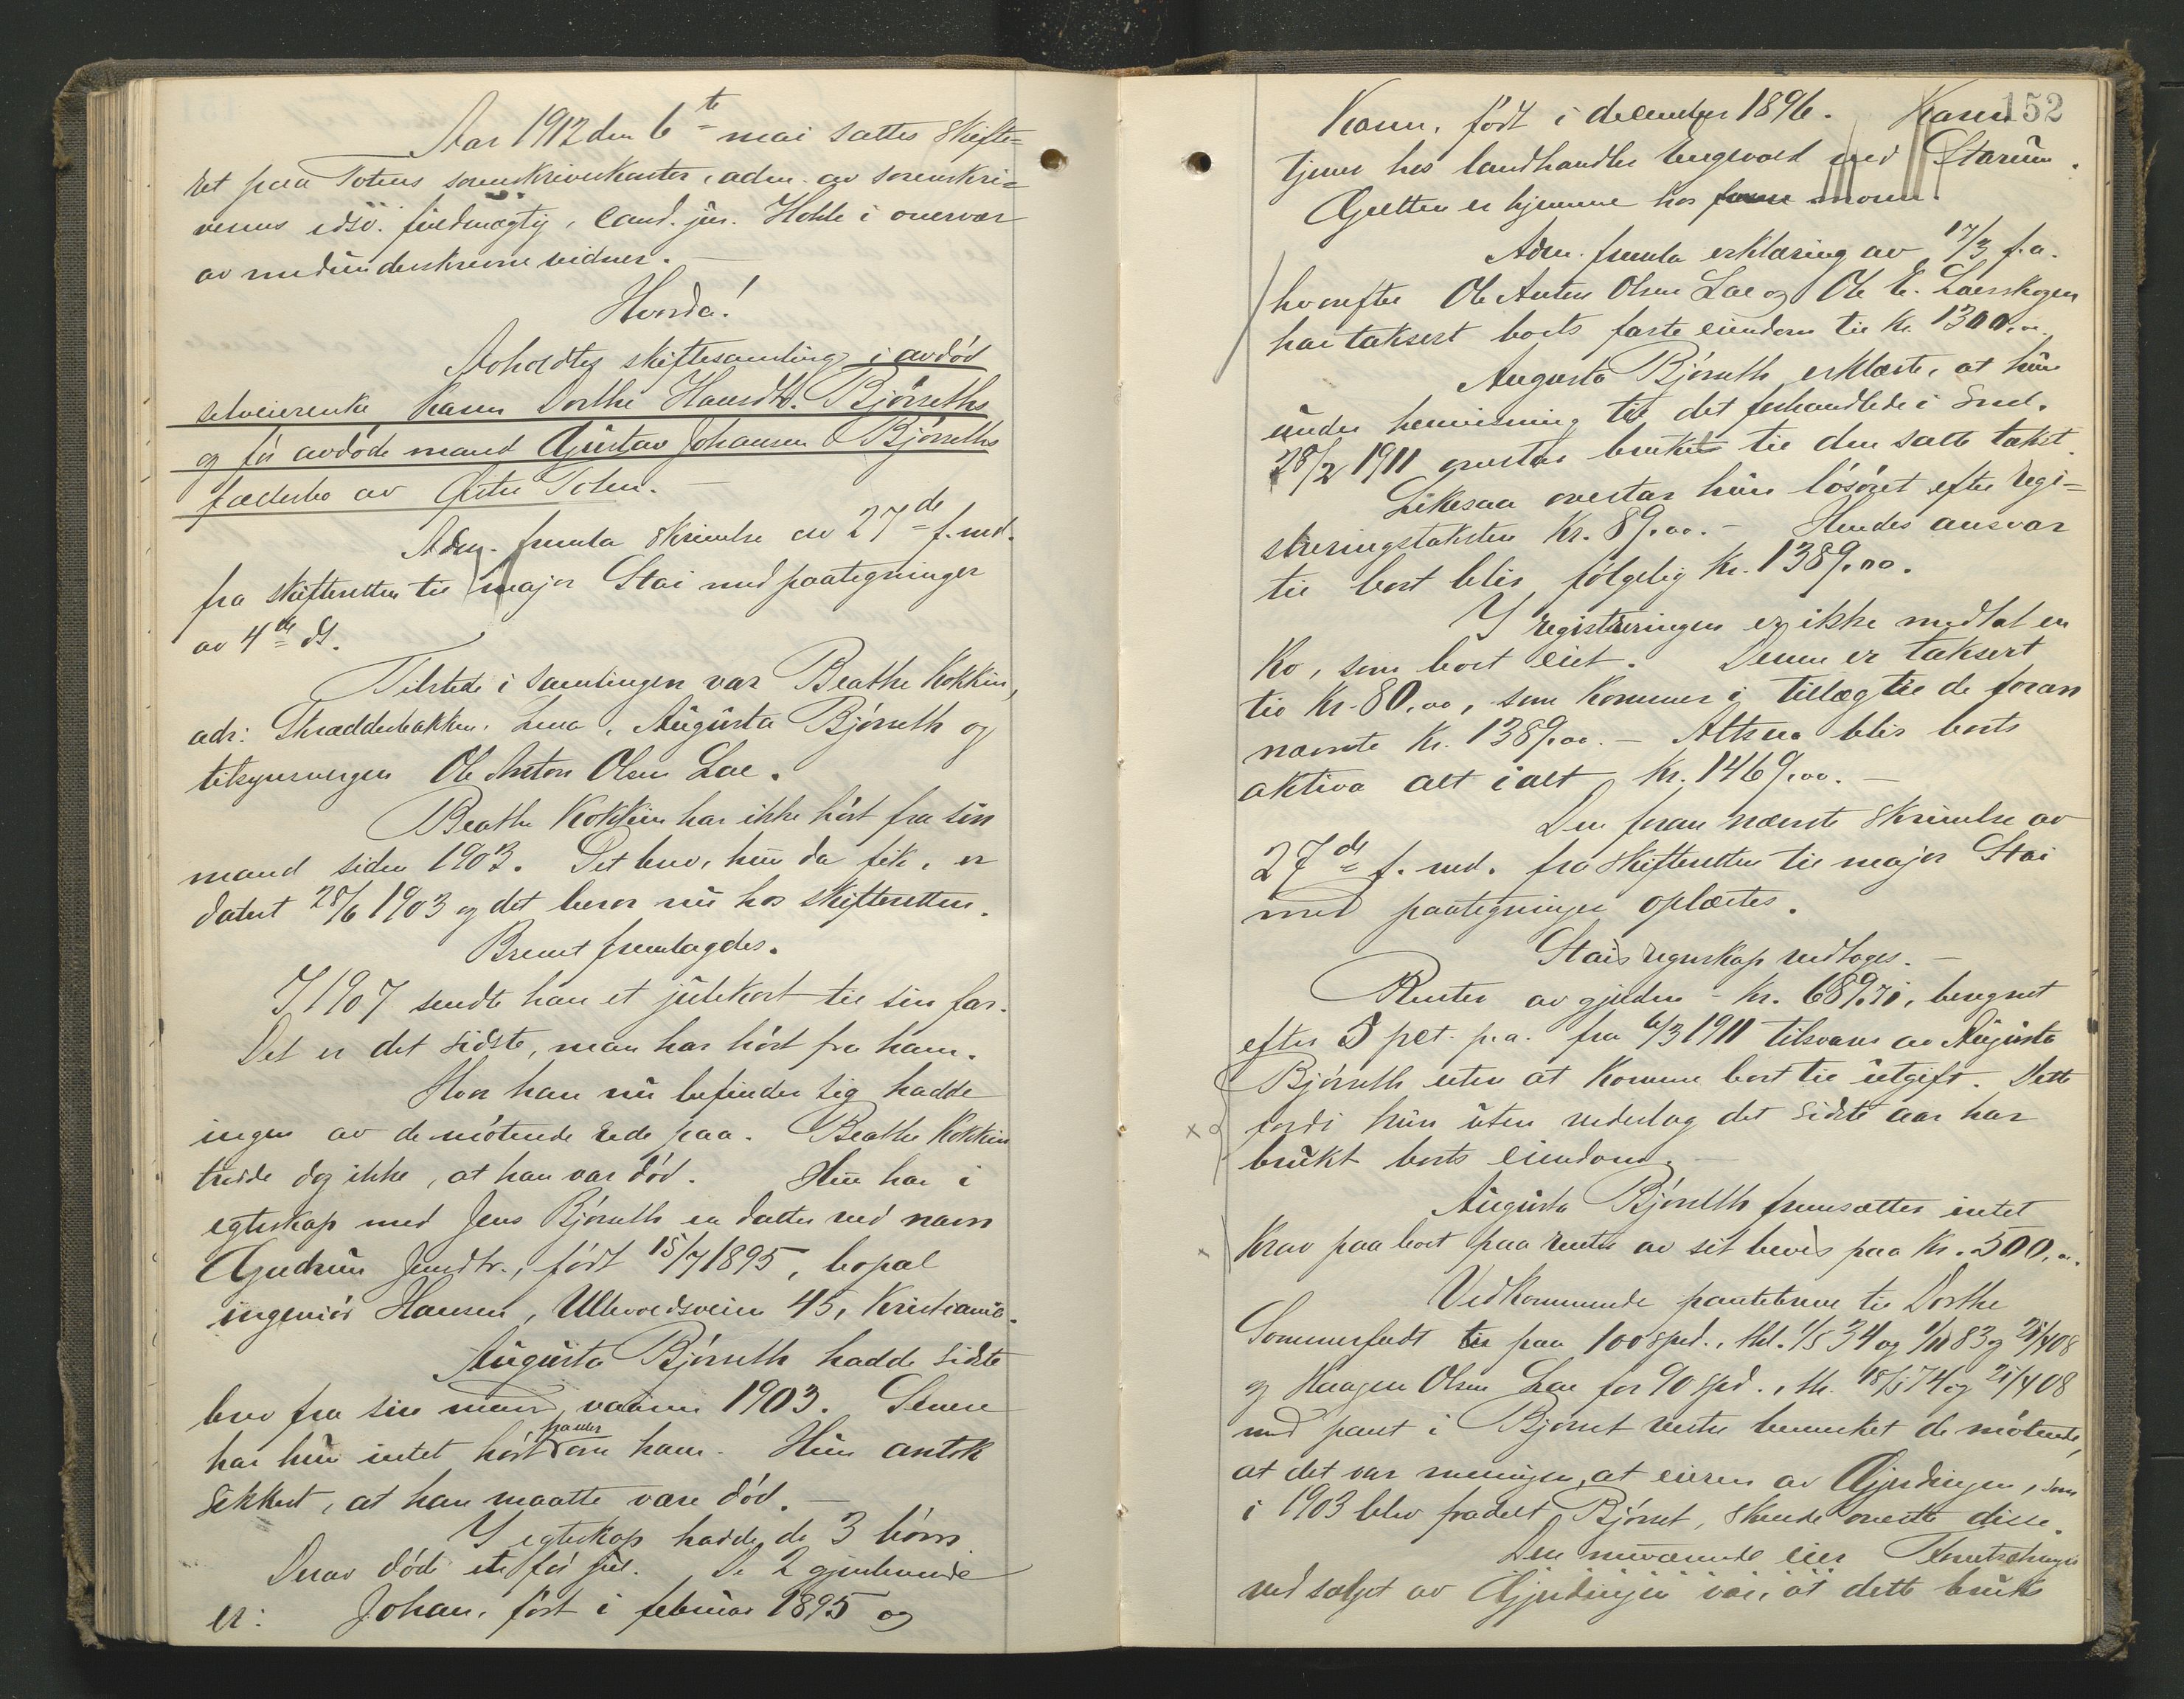 Aar 1912 den 6te mai sattes skifte=
ret paa Totens sorenskriverkontor, adm. av sorenskri=
verens edsv. fuldmægtig, cand. jur. Hohle i overvær
av medunderskrevne vidner. —
Hvorda!
Avholdtes skiftesamling i avdød
selveierenke Karen Dorthe Hansdtr. Bjørseths
og før avdøde mand Gustav Johansen Bjørseths
fællesbo av Østre Toten. —
Adm. fremla skrivelse av 27de f. md.
fra skifteretten til major Stai med paategninger
av 4de ds.
Tilstede i samlingen var Beathe Kokkin,
adr: Skrædderbakken, Lena, Augusta Bjørseth og
tilsynsvergen Ole Anton Olsen Loe.
Beathe Kokkin har ikke hørt fra sin
mand siden 1903. Det brev, hun da fik, er
datert 28/6 1903 og det beror nu hos skifteretten.
Brevet fremlagdes.
I 1907 sendte han et julekort til sin far.
Det er det sidste, man har hørt fra ham.
Hvor han nu befinder sig hadde
ingen av de møtende rede paa. Beathe Kokkin
trodde dog ikke, at han var død. Hun har i
egteskap med Jens Bjørseth en datter ved navn
Gudrun Jensdtr., født 15/7 1895, bopæl
ingeniør Hansen, Ullevoldsveien 45, Kristiania.
Augusta Bjørseth hadde sidste
brev fra sin mand vaaren 1903. Senere
har hun intet hørt om ham. Hun antok
sikkert, at han maatte være død. —
I egteskap hadde de 3 børn
Derav døde et før jul. De 2 gjenlevende
er: Johan, født i februar 1895 og
152
Karen, født i december 1896. Karen
tjener hos landhandler Engevold ved Starum.
Gutten er hjemme hos moren.
Adm. fremla erklæring av 17/3 f.a.
hvorefter Ole Anton Olsen Loe og Ole E. Loeskogen
har taksert boets faste eiendom til Kr. 1300.00.
Augusta Bjørseth erklærte, at hun
under henvisning til det forhandlede i saml.
28/2 1911 overtar bruket til den satte takst.
Likesaa overtar hun løsøret efter regi=
streringstaksten Kr. 89.00. — Hendes ansvar
til boet blir følgelig Kr. 1389.00.
I registreringen er ikke medtat en
ko, som boet eiet. Denne er taksert
til Kr. 80.00, som kommer i tillæg til de foran
nævnte Kr. 1389.00. — Altsaa blir boets
aktiva alt i alt Kr. 1469.00. —
Den foran nævnte skrivelse av
27de f. md. fra skifteretten til major Stai
med paategninger oplæstes.
Stais regnskap vedtoges. —
Renter av gjælden - Kr. 689.71, beregnet
efter 5 pct. p.a. fra 6/3 1911 tilsvares av Augusta
Bjørseth uten at komme boet til utgift. Dette
fordi hun uten vederlag det sidste aar har
brukt boets eiendom. —
Augusta Bjørseth fremsætter intet
krav paa boet paa renter av sit bevis paa Kr. 500.00.
Vedkommende pantebreve til Dorthe
Sommerfeldt paa 100 spd., thl. 1/5 34 og 1/11 83 og 25/4 08
og Haagen Olsen Loe for 90 spd., thl. 18/5 74 og 25/4 08
med pant i Bjørset vestre bemerket de møtende,
at det var meningen, at eieren av Gjerdingen, som
i 1903 blev fradelt Bjørset, skulde overta disse.
Den nuværende eier
ved salget av Gjerdingen var, at dette bruks